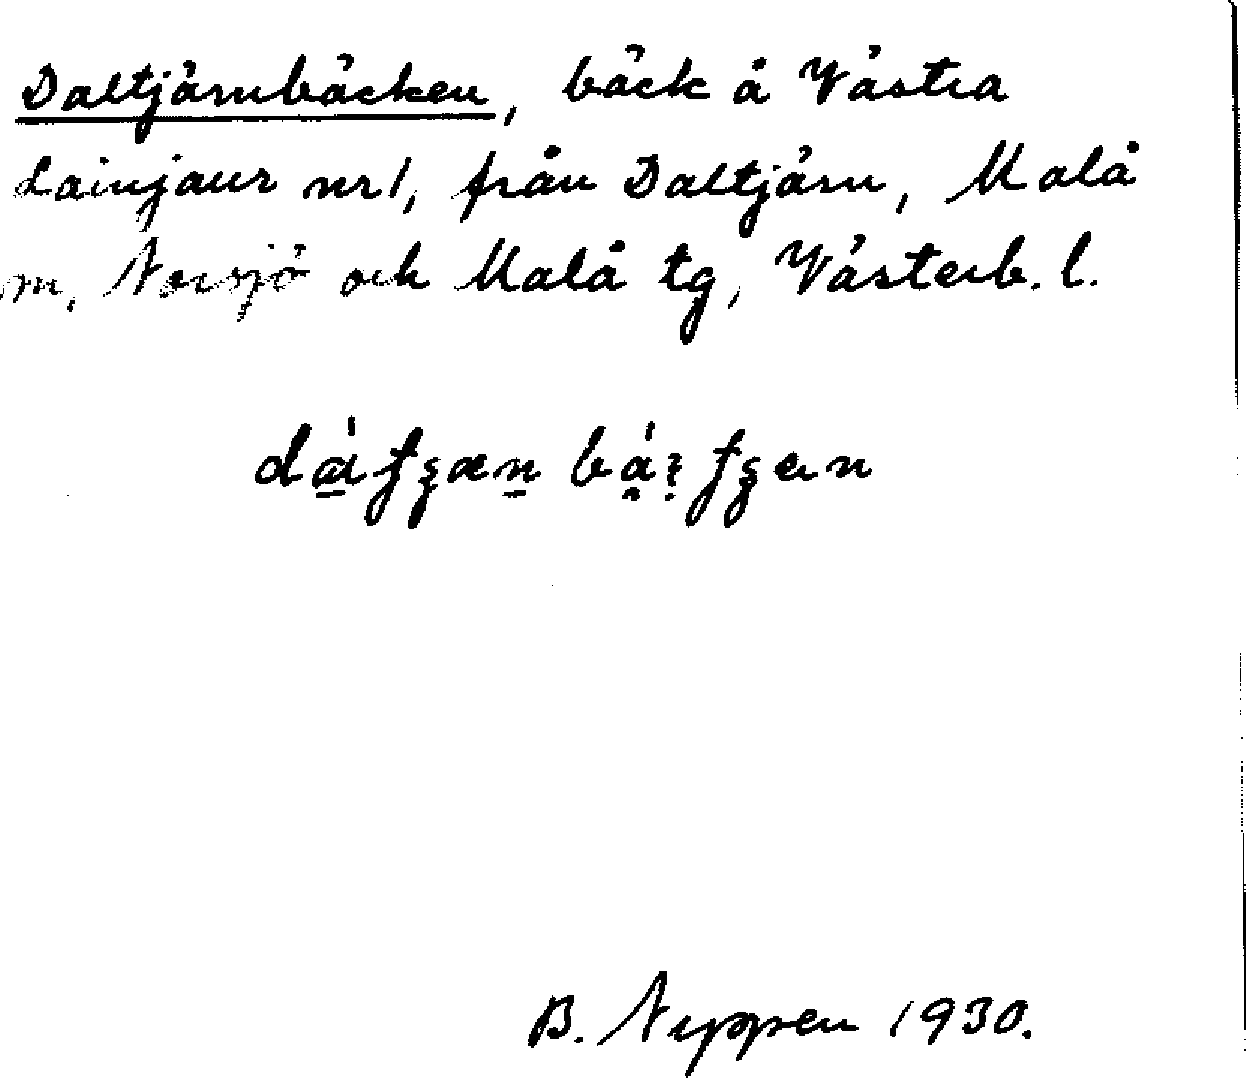 Daltjärnbäcken, bäck å Västra
Lainjaur nr 1, från Daltjärn, Malå
m, Norsjö och Malå tg, Västerb. l.
B. Nyppen 1930.